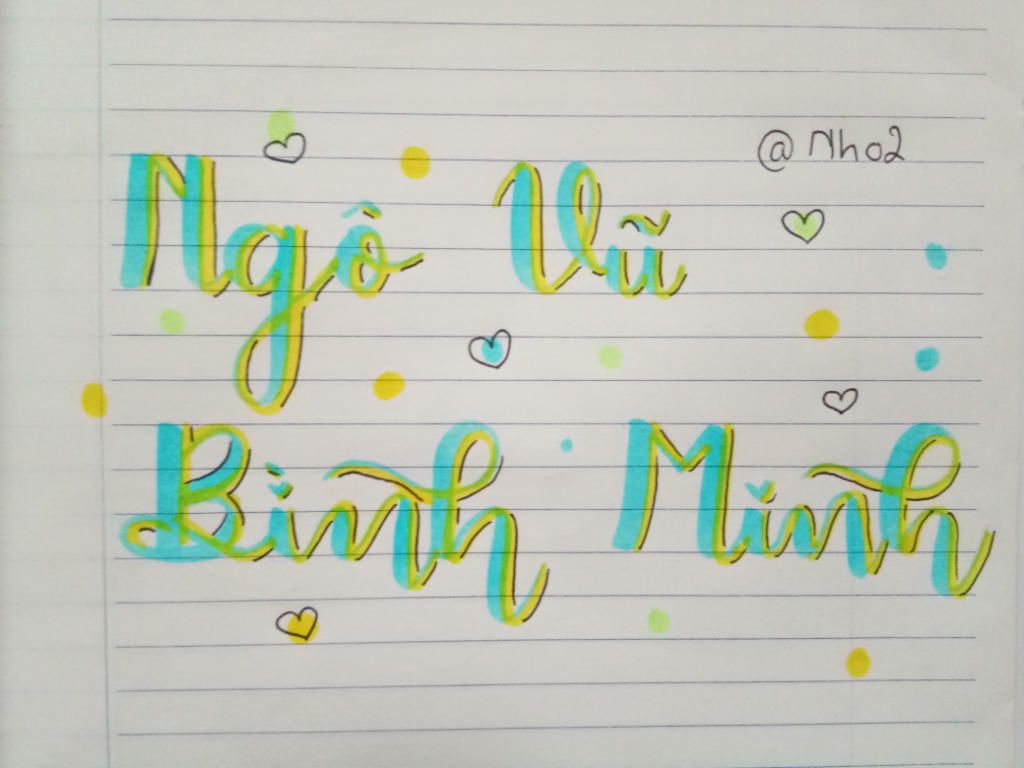 @Nho2
Ngô Vũ
Bình Minh